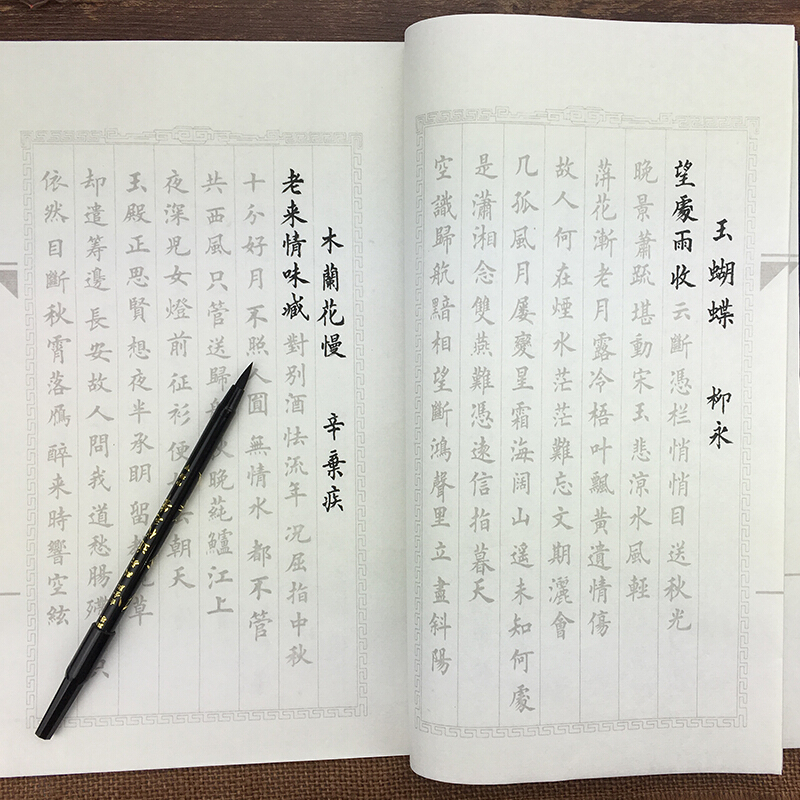 玉蝴蝶 柳永
望處雨收云斷憑栏悄悄目送秋光
晚景蕭疏堪動宋玉悲凉水風輕
蓱花漸老月露冷梧叶飄黄遺情傷
故人何在煙水茫茫難忘文期灑會
几孤風月屡變星霜海阔山遥未知何處
是瀟湘念雙燕難憑遠信指暮天
空識歸航黯相望斷鴻聲里立盡斜陽
木蘭花慢 辛棄疾
老来情味减對别酒怯流年况屈指中秋
十分好月不照人圓無情水都不管
共西風只管送歸 秋晚蒓鱸江上
夜深兒女燈前征衫便 朝天
玉殿正思賢想夜半承明留 草
却遣籌邊長安故人問我道愁腸 只
依然目斷秋霄落鴈醉来時響空絃